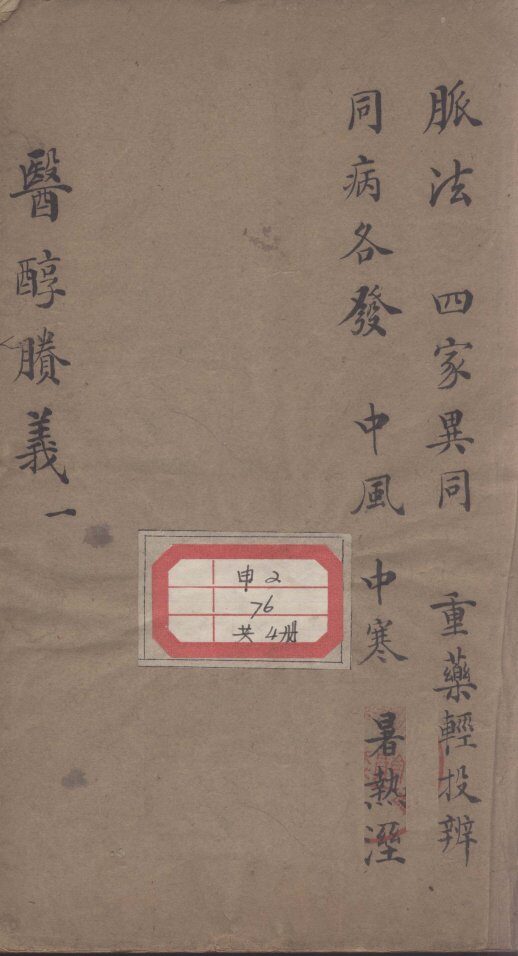 脈法 四家異同 重藥輕投辨
同病各發 中風 中寒 暑熱溼
醫醇賸義 一
申2
76
共4册